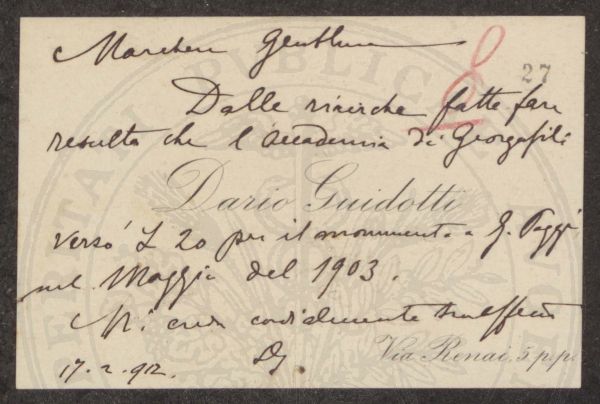 Marchese Gentilmo
27
Dalle ricerche fatte fare
resulta che l'accademia di Georgofili
Dario Guidotti
versò £ 20 per il monumento a G. Poggi
nel Maggio del 1903.
Mi creda cordialmente
Via Renai, 5 p.p.
17.2.912. DG